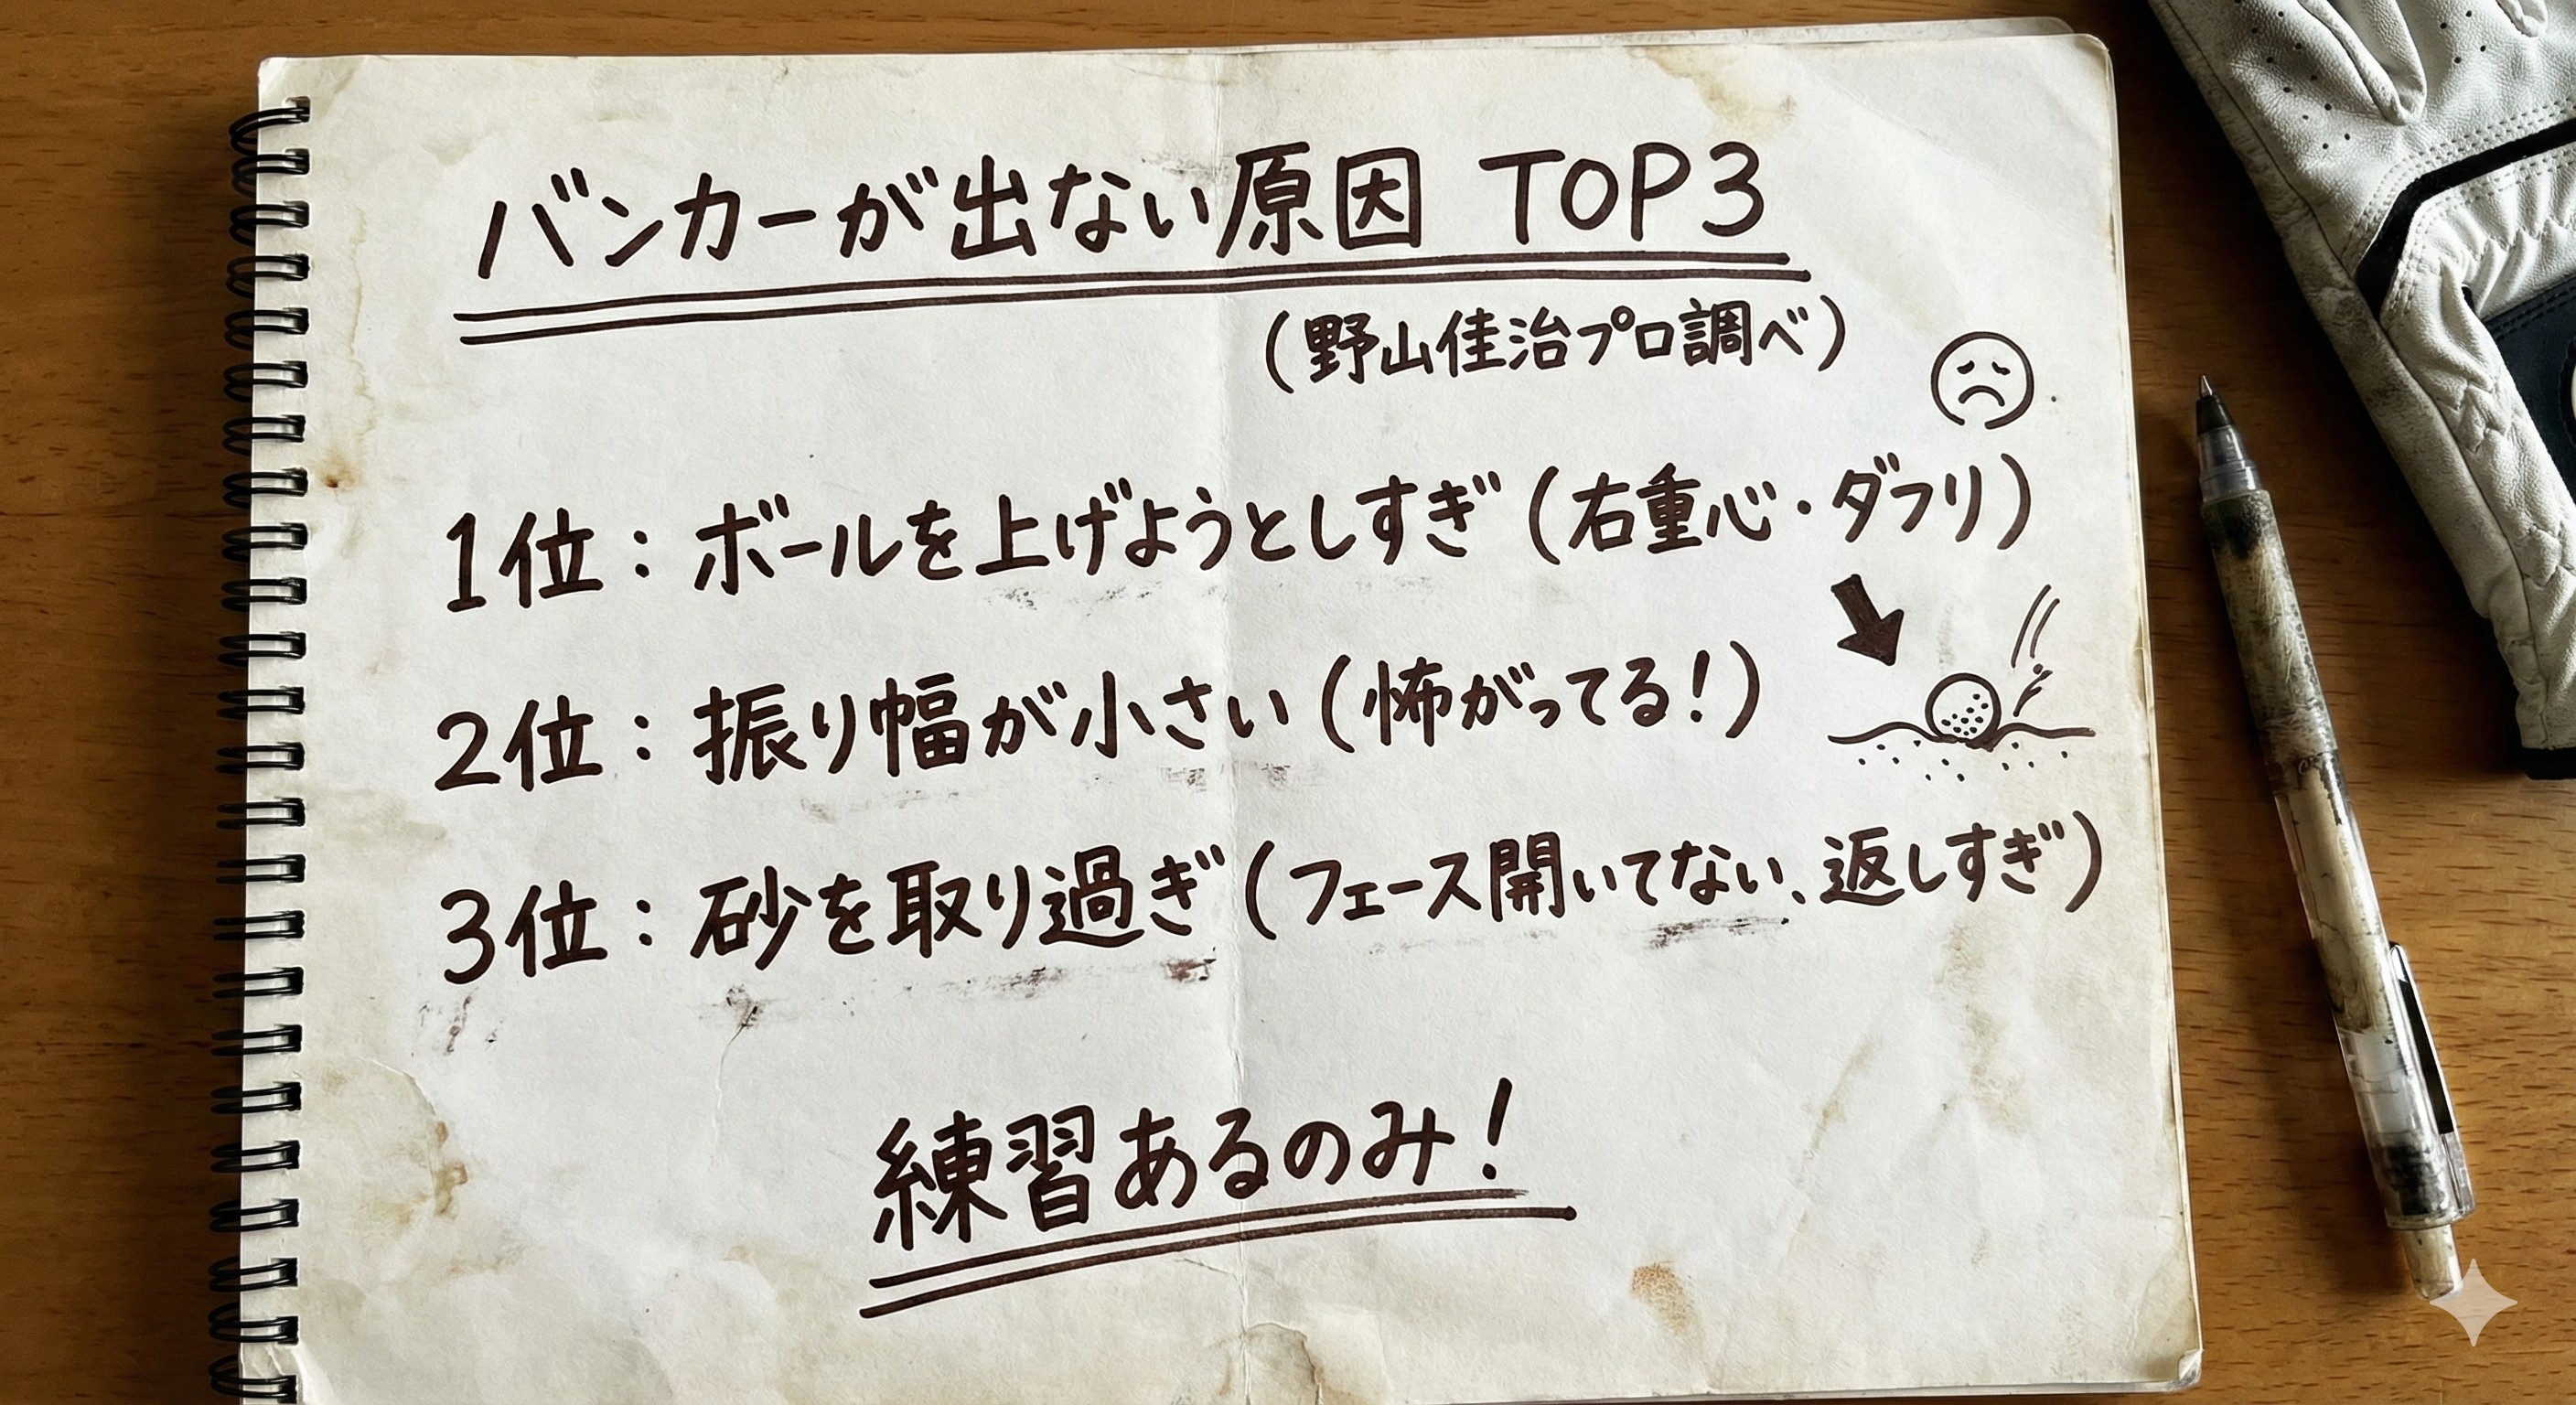 バンカーが出ない原因 TOP3
(野山佳治プロ調べ)
1位：ボールを上げようとしすぎ(右重心・ダフリ)
2位：振り幅が小さい(怖がってる！)
3位：砂を取り過ぎ(フェース開いてない、返しすぎ)
練習あるのみ！